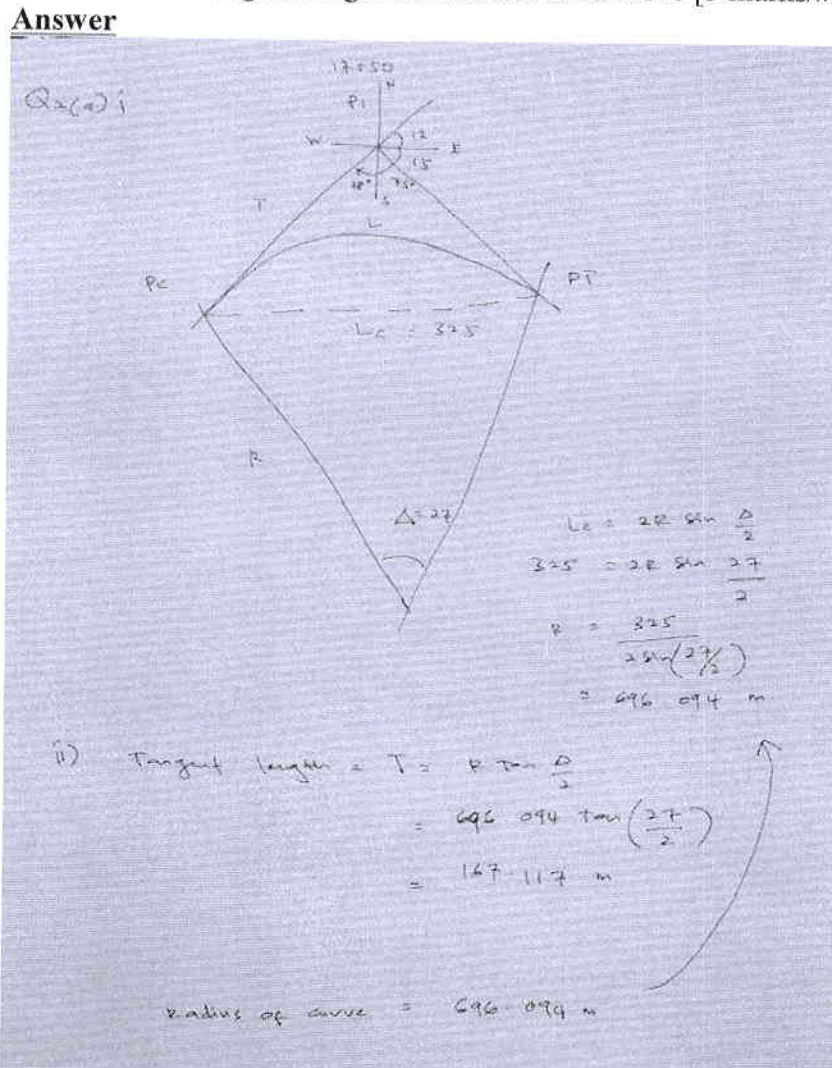 Answer
Q2(a) i
17+050
N
PI
W
12
E
15
78°
75°
S
T
L
PC
PT
Lc = 325
R
Δ=27
Lc = 2R sin Δ/2
325 = 2R sin 27/2
R = 325 / 2 sin(27/2)
= 696.094 m
ii) Tangent length = T = R Tan Δ/2
= 696.094 tan (27/2)
= 167.117 m
Radius of curve = 696.094 m